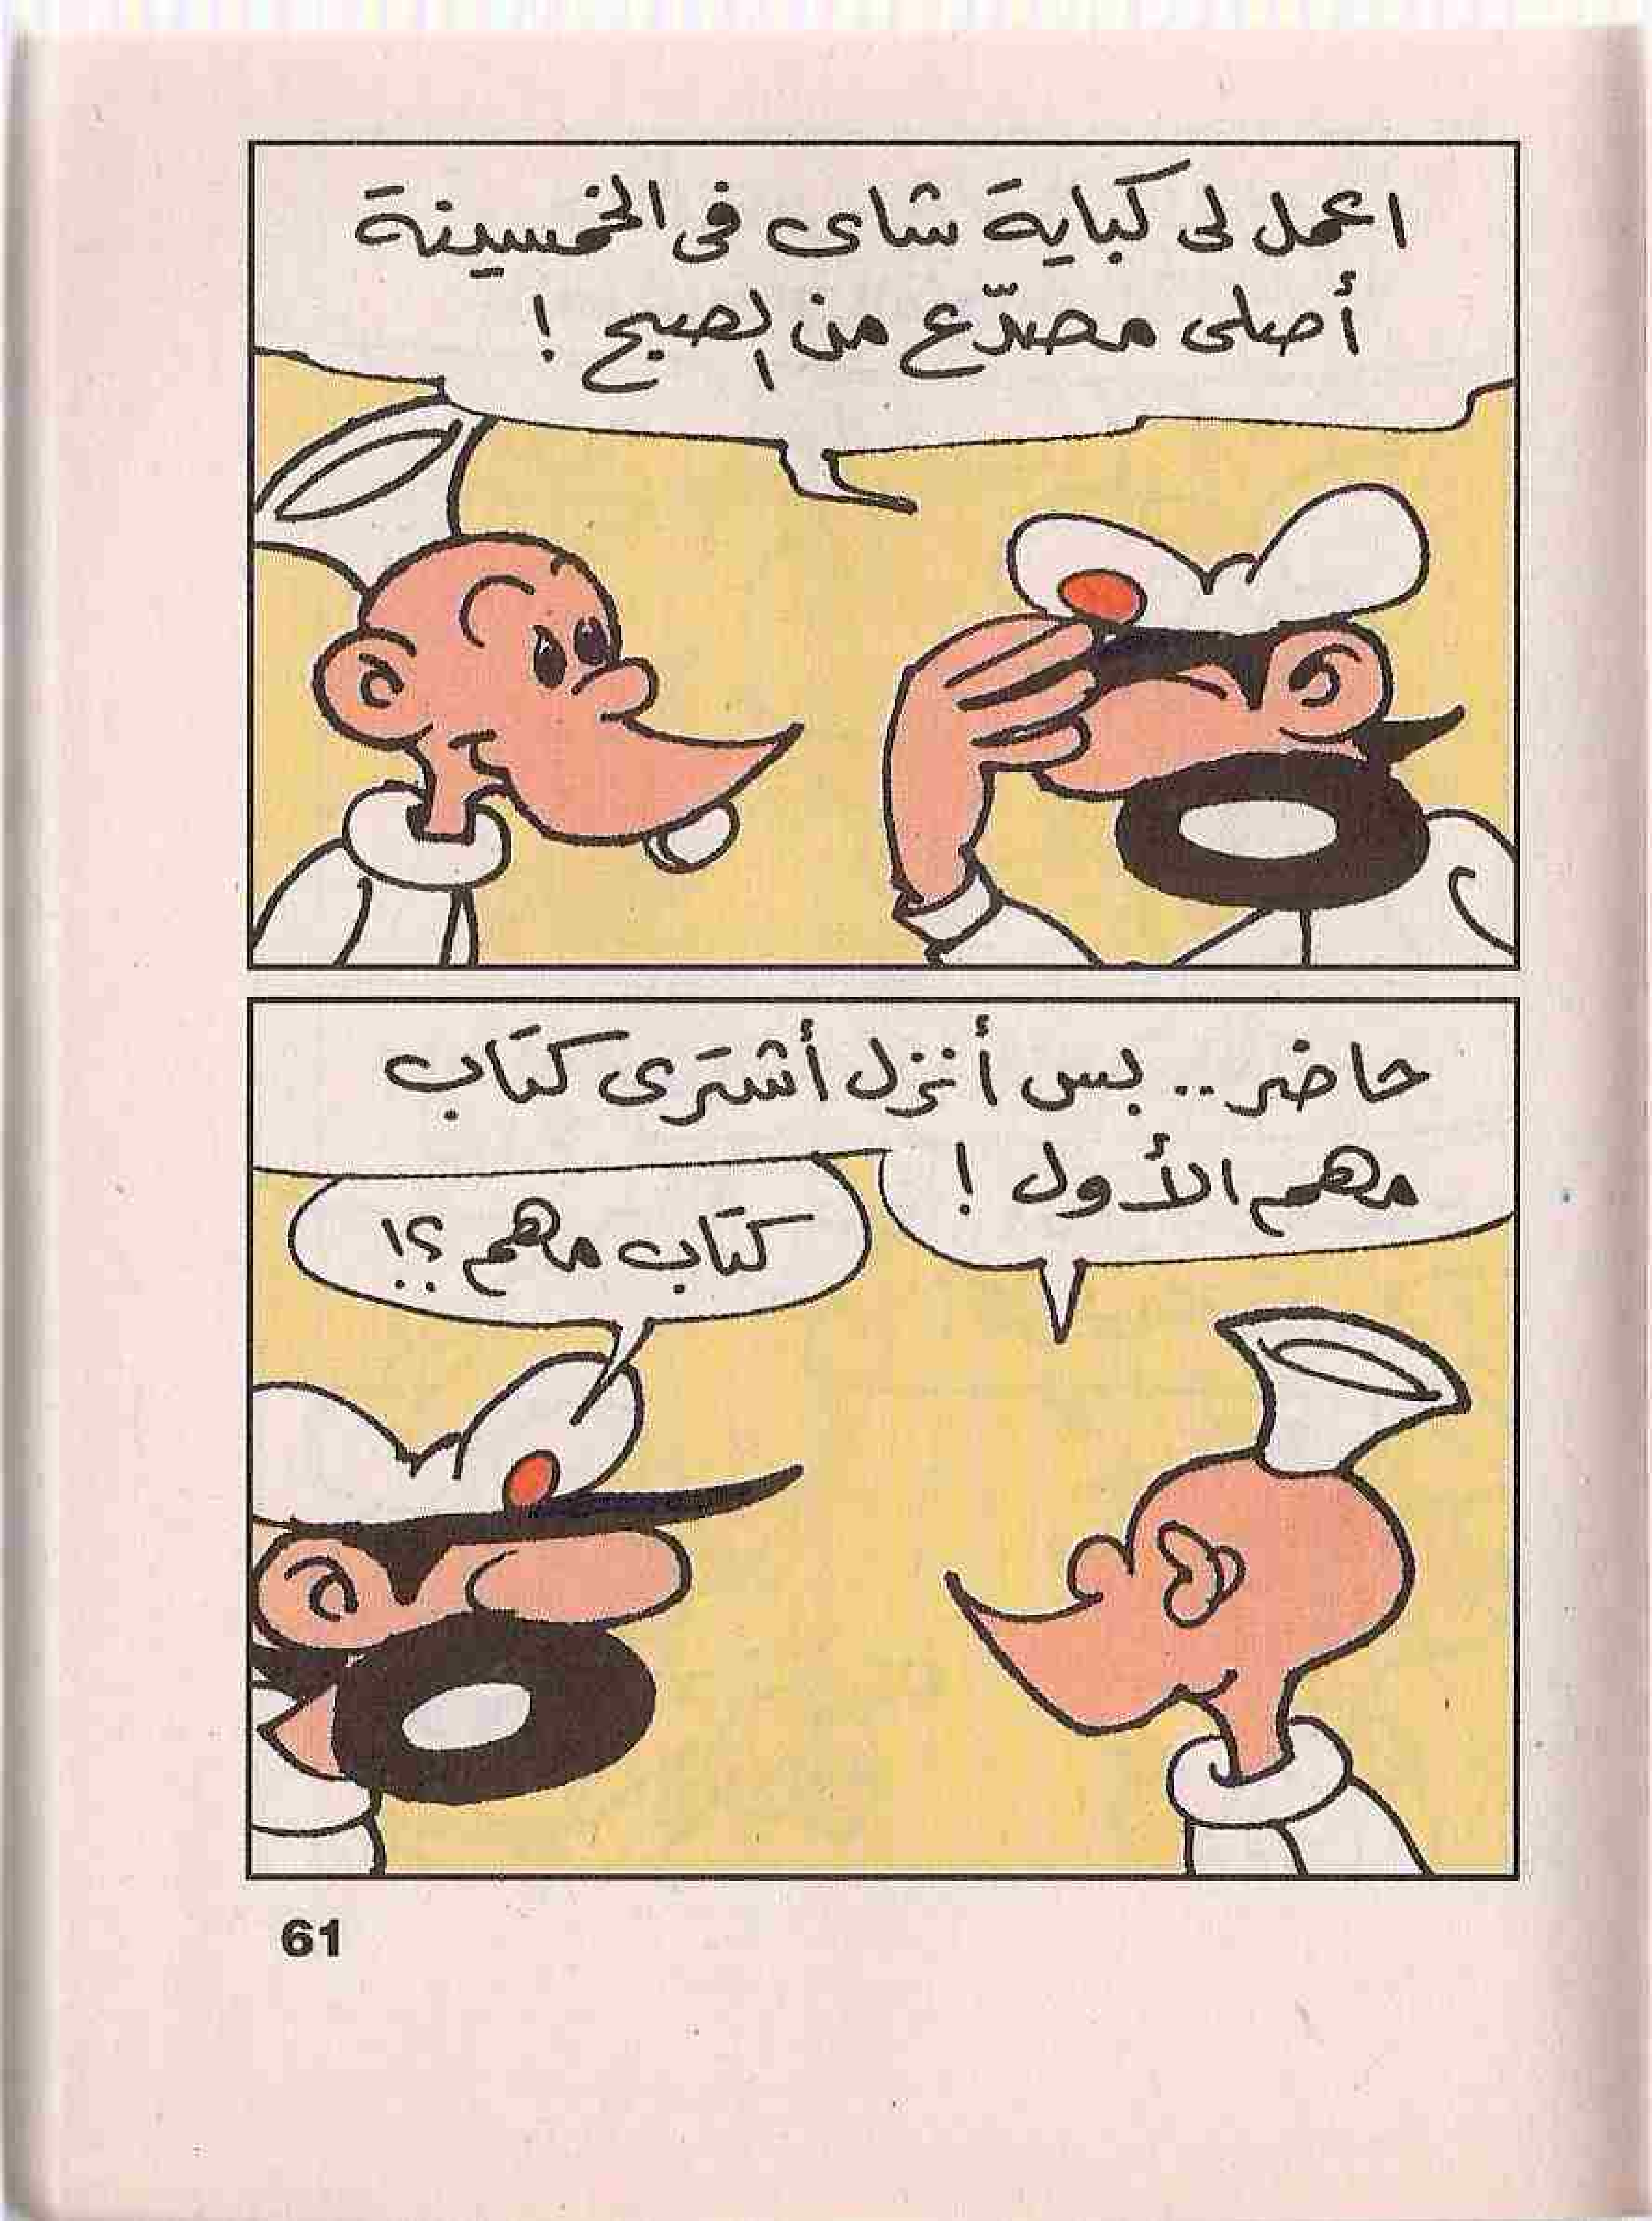 اعمل لى كباية شاى فى الخمسينة
أصلى مصدّع من الصبح !
حاضر .. بس أنزل أشترى كتاب
مهم الأول !
كتاب مهم ؟!
61